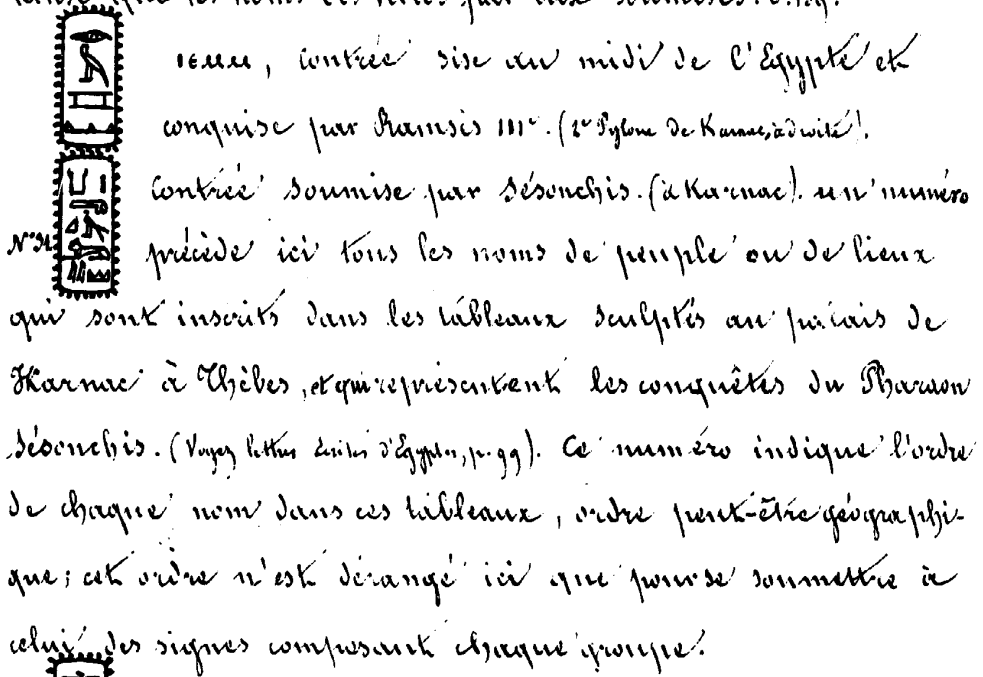 que les noms des villes par eux soumises.
ⲓⲉⲙⲙ, contrée sise au midi de l'Egypte et
conquise par Ramsès IIIe. (2e Pylone de Karnac, à droite).
Contrée soumise par Sésonchis. (à Karnac). un numéro
précède ici tous les noms de peuple ou de lieux
qui sont inscrits dans les tableaux sculptés au palais de
Karnac à Thèbes, et qui représentent les conquêtes du Pharaon
Sésonchis. (Voyez lettres écrites d'Egypte, p. 99). Ce numéro indique l'ordre
de chaque nom dans ces tableaux, ordre peut-être géographi-
que; cet ordre n'est dérangé ici que pour se soumettre à
celui des signes composant chaque groupe.